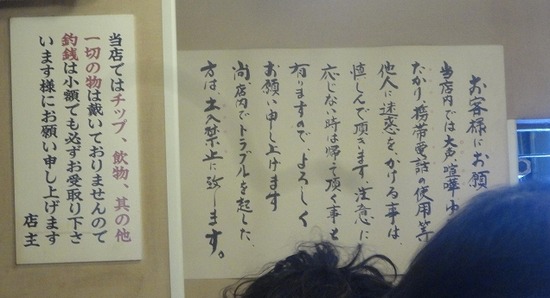 お客様にお願
当店内では大声、喧嘩、ゆ
たかり、携帯電話の使用等
他人に迷惑をかける事は、
慎しんで頂きます、注意に
応じない時は帰って頂く事も
有りますので、よろしく
お願い申し上げます
尚、店内でトラブルを起した
方は出入禁止に致します。
当店ではチップ、飲物、其の他
一切の物は戴いておりませんので
釣銭は小額でも必ずお受取り下さ
います様にお願い申し上げます
店主